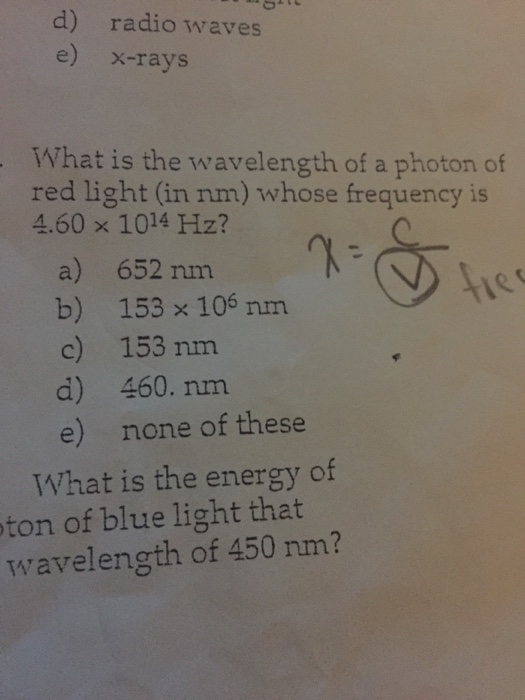 d) radio waves
e) x-rays
What is the wavelength of a photon of
red light (in nm) whose frequency is
4.60 × 10¹⁴ Hz?
a) 652 nm
b) 153 × 10⁶ nm
c) 153 nm
d) 460. nm
e) none of these
λ = C
V
What is the energy of
ton of blue light that
wavelength of 450 nm?